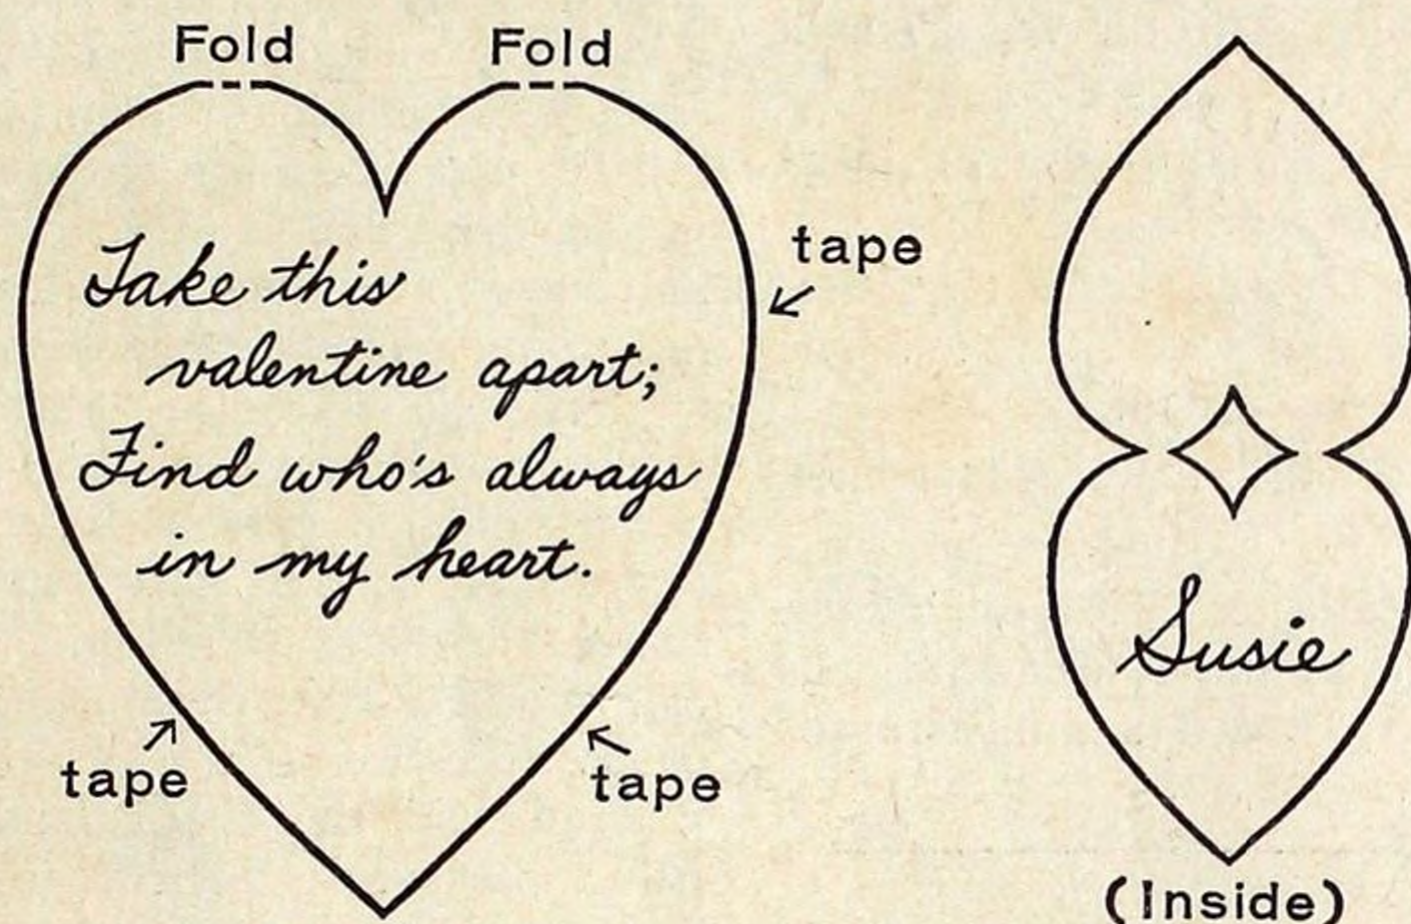 Fold Fold
tape
Take this
valentine apart;
Find who's always
in my heart.
tape tape
Susie
(Inside)